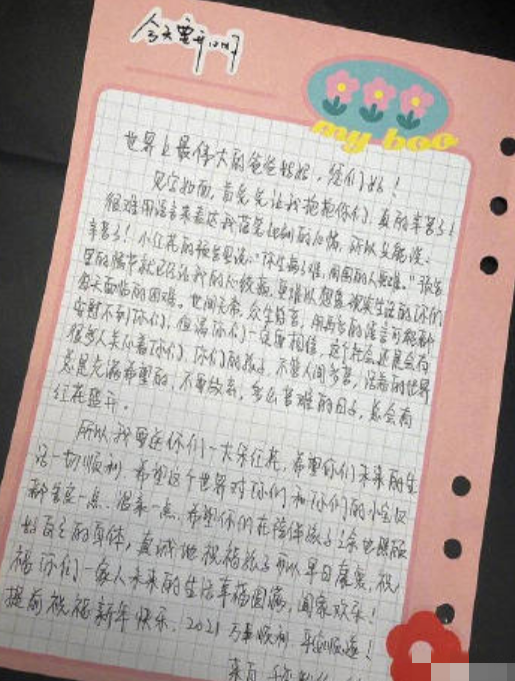 今天要开心呀
my boo
世界上最伟大的爸爸妈妈，您们好！
见字如面，首先先让我抱抱你们，真的辛苦了！
很难用语言来表达我落笔此刻的心情，所以只能说，
辛苦了！小红花的预告里说："你生病了难，周围的人更难。"预告
里的情节就已经让我的心绞痛，更难以想象现实生活的你们
每天面临的困难。世间无常，众生皆苦，用再多的语言可能都
安慰不到你们，但请你们一定要相信，这个社会还是会有
很多人关心着你们，你们的孩子，不管人间多苦，活着的世界
总是充满希望的，不要放弃，多么苦难的日子，总会有
红花盛开。
所以，我要送你们一大朵红花，希望你们未来的生
活一切顺利，希望这个世界对你们和你们的小宝贝
都善良一点，温柔一点，希望你们在陪伴孩子之余也照顾
好自己的身体，真诚地祝福孩子可以早日康复，祝
福你们一家人未来的生活幸福圆满，阖家欢乐！
提前祝福新年快乐，2021万事顺利，平安顺遂！
来自